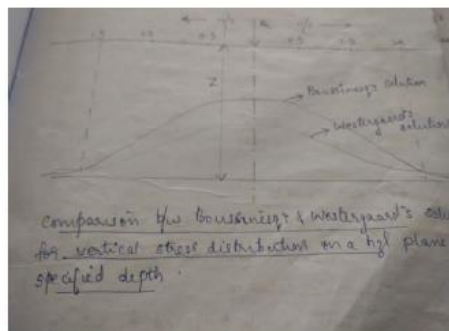 Z
Boussinesq's solution
Westergaard's
solution
Comparison b/w Boussinesq's & Westergaard's solu
for vertical stress distribution on a hzl plane
specified depth